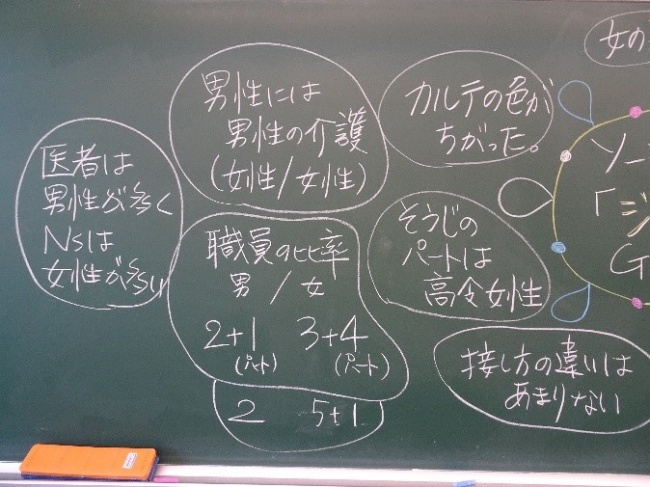 医者は
男性が多く
Nsは
女性が多い
男性には
男性の介護
(女性/女性)
職員の比率
男 / 女
2+1 3+4
(パート) (パート)
2 5+1
カルテの色が
ちがった。
そうじの
パートは
高令女性
接し方の違いは
あまりない
女の
ソー
「ジ
G